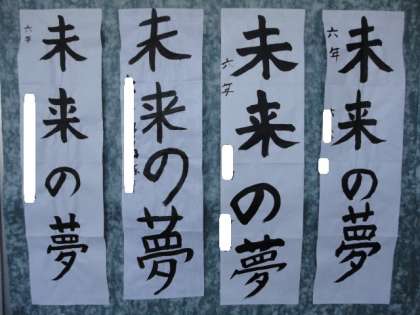 六年
未来の夢
未来の夢
六年
未来の夢
六年
未来の夢